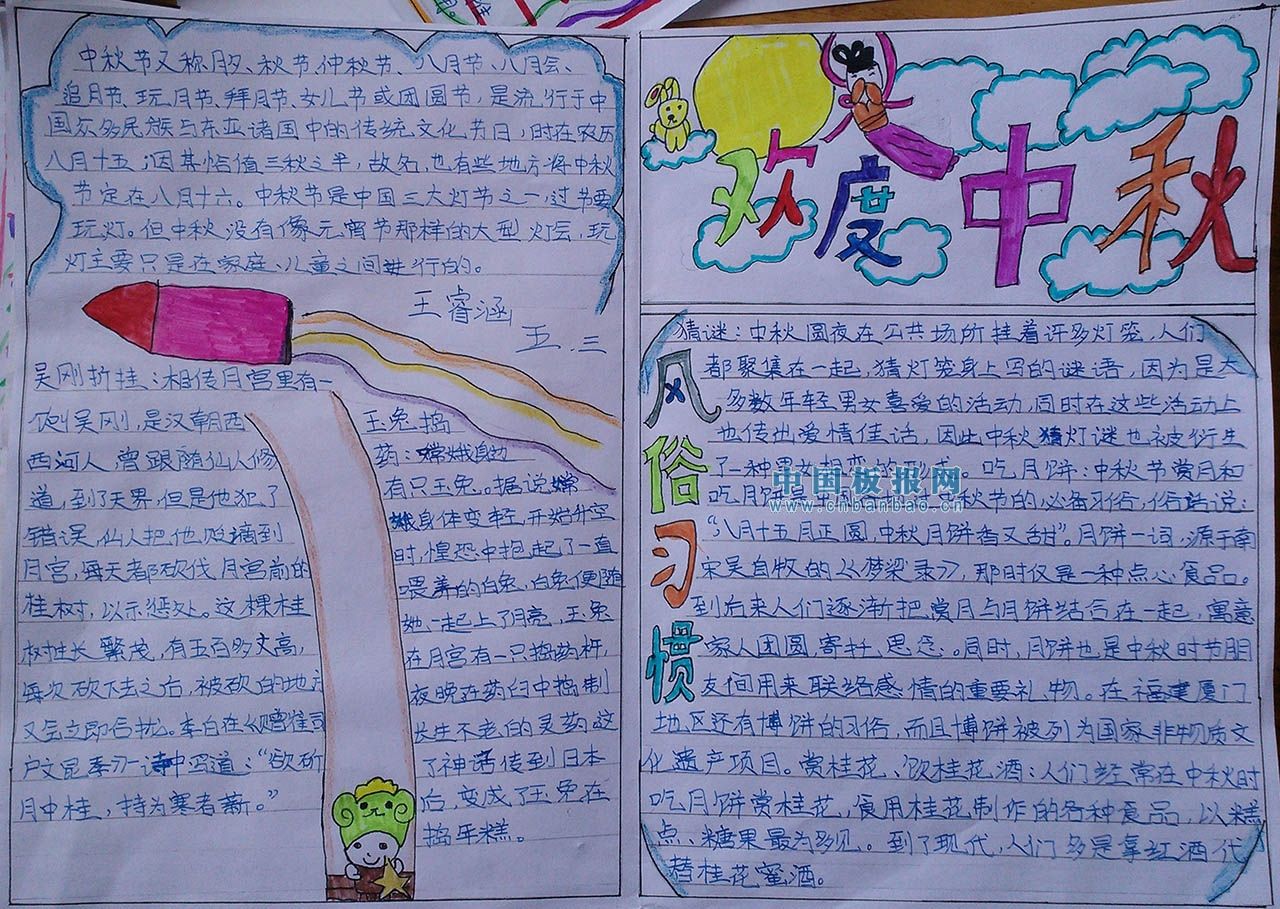 中秋节又称月夕、秋节、仲秋节、八月节、八月会、
追月节、玩月节、拜月节、女儿节或团圆节，是流行于中
国众多民族与东亚诸国中的传统文化节日，时在农历
八月十五；因其恰值三秋之半，故名，也有些地方将中秋
节定在八月十六。中秋节是中国三大灯节之一，过节要
玩灯。但中秋没有像元宵节那样的大型灯会，玩
灯主要只是在家庭、儿童之间进行的。
王睿涵
五.三
吴刚折挂：相传月宫里有一
个叫吴刚，是汉朝西
西河人，曾跟随仙人修
道，到了天界，但是他犯了
错误，仙人把他贬谪到
月宫，每天都砍伐月宫前的
桂树，以示惩处。这棵桂
树生长繁茂，有五百多丈高，
每次砍下去之后，被砍的地方
又会立即合拢。李白在《赠崔司
户文昆季》一诗中写道：“欲斫
月中桂，持为寒者薪。”
玉兔捣
药：嫦娥身边
有只玉兔。据说嫦
娥身体变轻，开始升空
时，惶恐中抱起了一直
喂养的白兔，白兔便随
她一起上了月亮，玉兔
在月宫有一只捣药杵，
夜晚在药臼中捣制
长生不老的灵药。这
了神话传到日本
后，变成了玉兔在
捣年糕。
欢度中秋
风俗习惯
猜谜：中秋圆夜在公共场所挂着许多灯笼，人们
都聚集在一起，猜灯笼身上写的谜语，因为是大
多数年轻男女喜爱的活动，同时在这些活动上
也传出爱情佳话，因此中秋猜灯谜也被衍生
了一种男女相恋的形式。吃月饼：中秋节赏月和
吃月饼是中国 秋节的必备习俗，俗话说：
“八月十五月正圆，中秋月饼香又甜”。月饼一词，源于南
宋吴自牧的《梦梁录》，那时仅是一种点心食品。
到后来人们逐渐把赏月与月饼结合在一起，寓意
家人团圆，寄托思念。同时，月饼也是中秋时节朋
友间用来联络感情的重要礼物。在福建厦门
地区还有博饼的习俗，而且博饼被列为国家非物质文
化遗产项目。赏桂花、饮桂花酒：人们经常在中秋时
吃月饼赏桂花，食用桂花制作的各种食品，以糕
点、糖果最为多见。到了现代，人们多是拿红酒代
替桂花蜜酒。
中国板报网
www.cnbanbao.cn